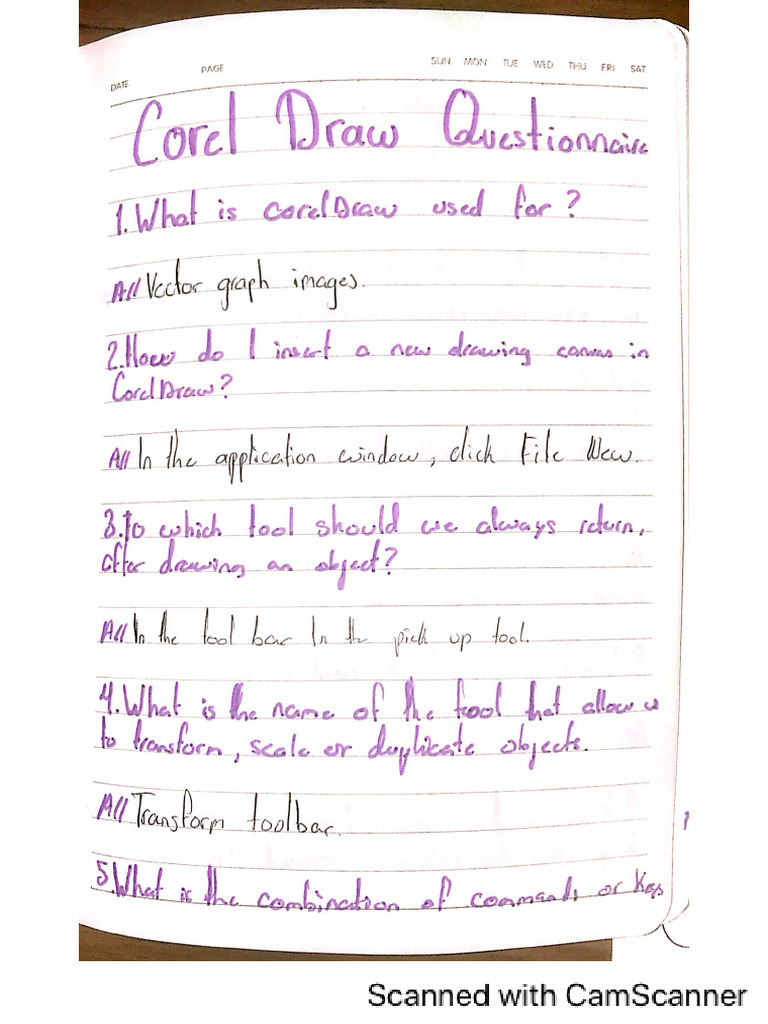 DATE PAGE SUN MON TUE WED THU FRI SAT
Corel Draw Questionnaire
1. What is corelDraw used for?
A// Vector graph images.
2. How do I insert a new drawing canvas in
CorelDraw?
A// In the application window, click File New.
3. to which tool should we always return,
after drawing an object?
A// In the tool bar In the pick up tool.
4. What is the name of the tool that allow us
to transform, scale or duplicate objects.
A// Transform toolbar.
5. What is the combination of commands or keys
Scanned with CamScanner